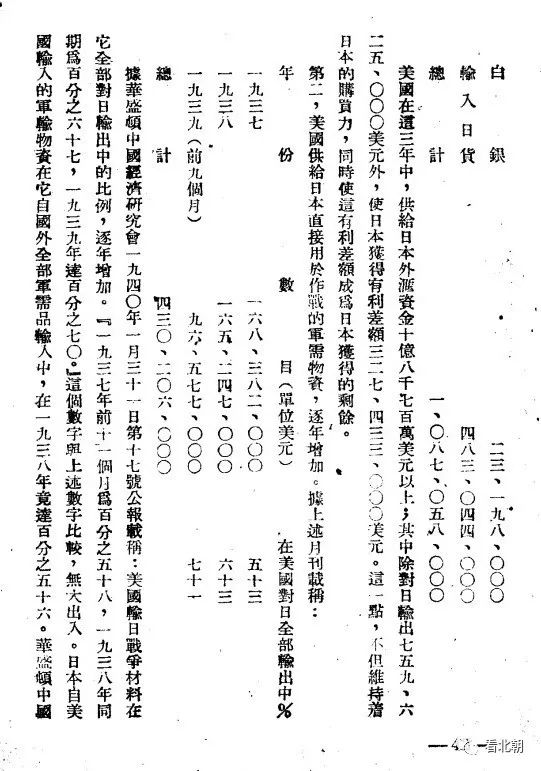 白　銀　二三、一九八、〇〇〇
輸入日貨　四八三、〇四四、〇〇〇
總　計　一、〇八七、〇五八、〇〇〇
美國在這三年中，供給日本外滙資金十億八千七百萬美元以上；其中除對日輸出七五九、六
二五、〇〇〇美元外，使日本獲得有利差額三二七、四三三、〇〇〇美元。這一點，不但維持着
日本的購買力，同時使這有利差額成爲日本獲得的剩餘。
第二，美國供給日本直接用於作戰的軍需物資，逐年增加。據上述月刊載稱：
年　份　數　目（單位美元）　在美國對日全部輸出中%
一九三七　一六八、三八二、〇〇〇　五十三
一九三八　一六五、二四七、〇〇〇　六十三
一九三九（前九個月）　九六、五七七、〇〇〇　七十一
總　計　四三〇、二〇六、〇〇〇
據華盛頓中國經濟研究會一九四〇年一月三十一日第十七號公報載稱：美國輸日戰爭材料在
它全部對日輸出中的比例，逐年增加。『一九三七年前十一個月爲百分之五十八，一九三八年同
期爲百分之六十七，一九三九年達百分之七〇。』這個數字與上述數字比較，無大出入。日本自美
國輸入的軍輸物資在它自國外全部軍需品輸入中，在一九三八年竟達百分之五十六。華盛頓中國
看北朝